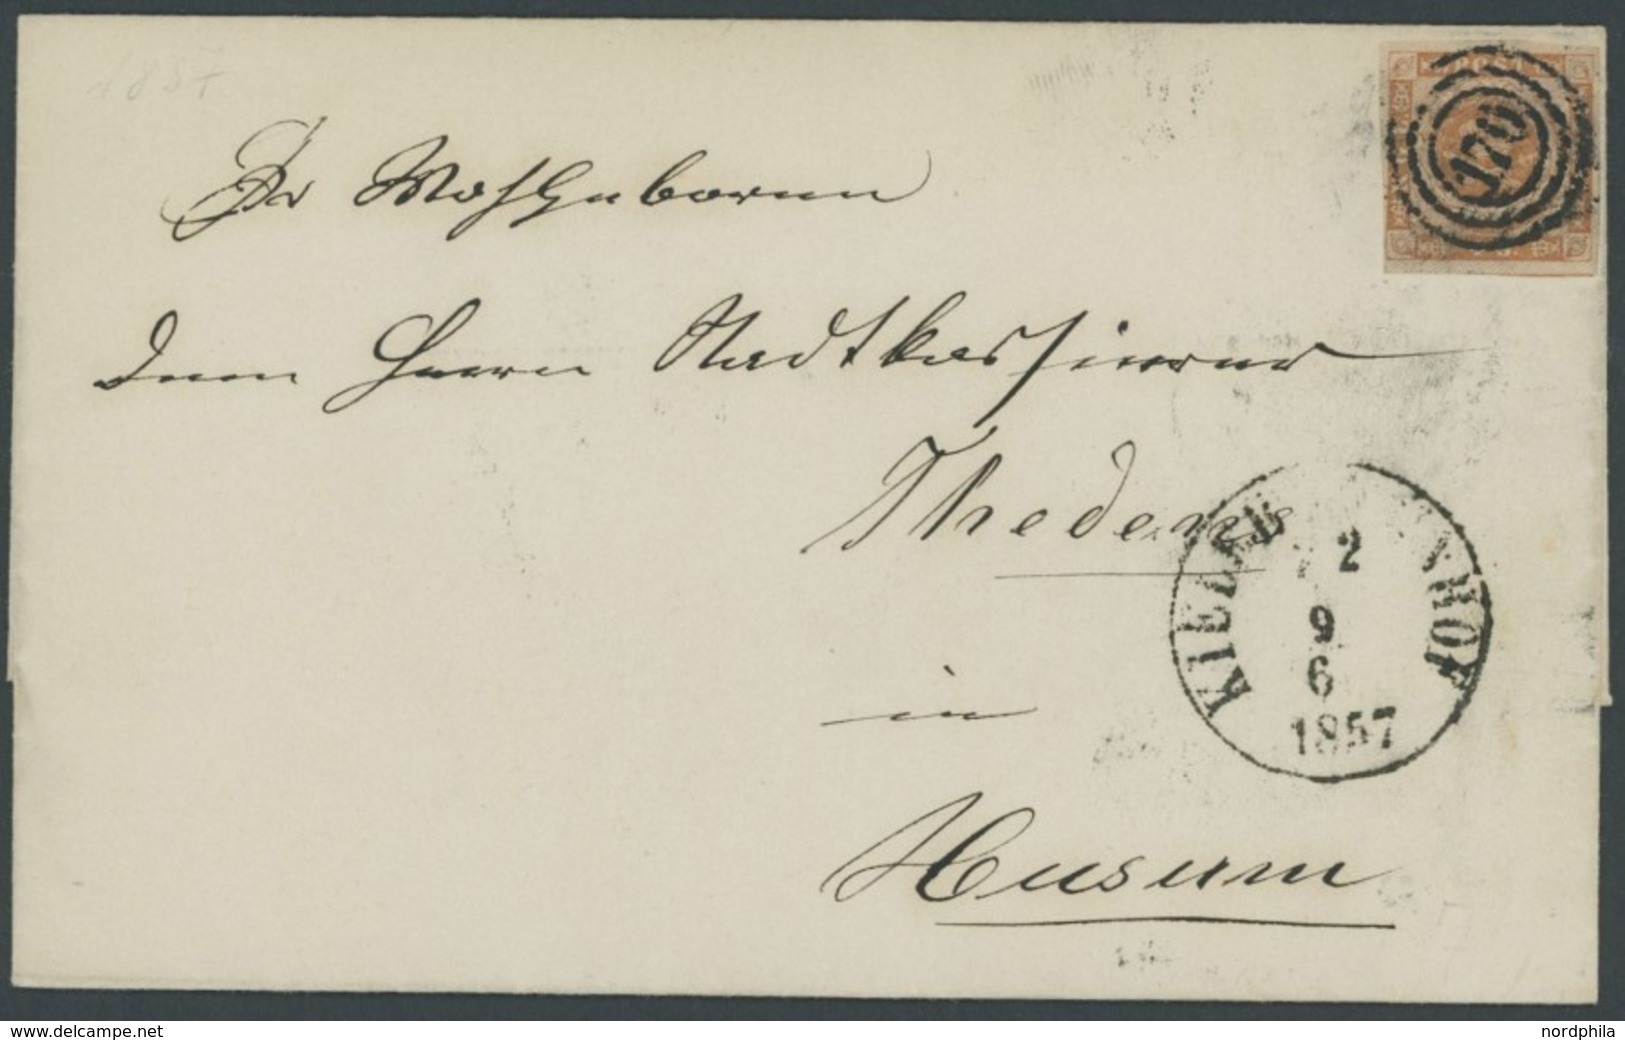 1857
POST
170
Sr Wohlgeboren
dem Herrn Stadtkassierer
Thedens
KIELER BAHNHOF
2
9
6
1857
in
Husum
www.delcampe.net
nordphila